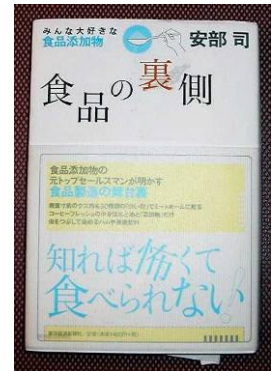 みんな大好きな
食品添加物
安部 司
食品の裏側
食品添加物の
元トップセールスマンが明かす
食品製造の舞台裏
知れば怖くて
食べられない!